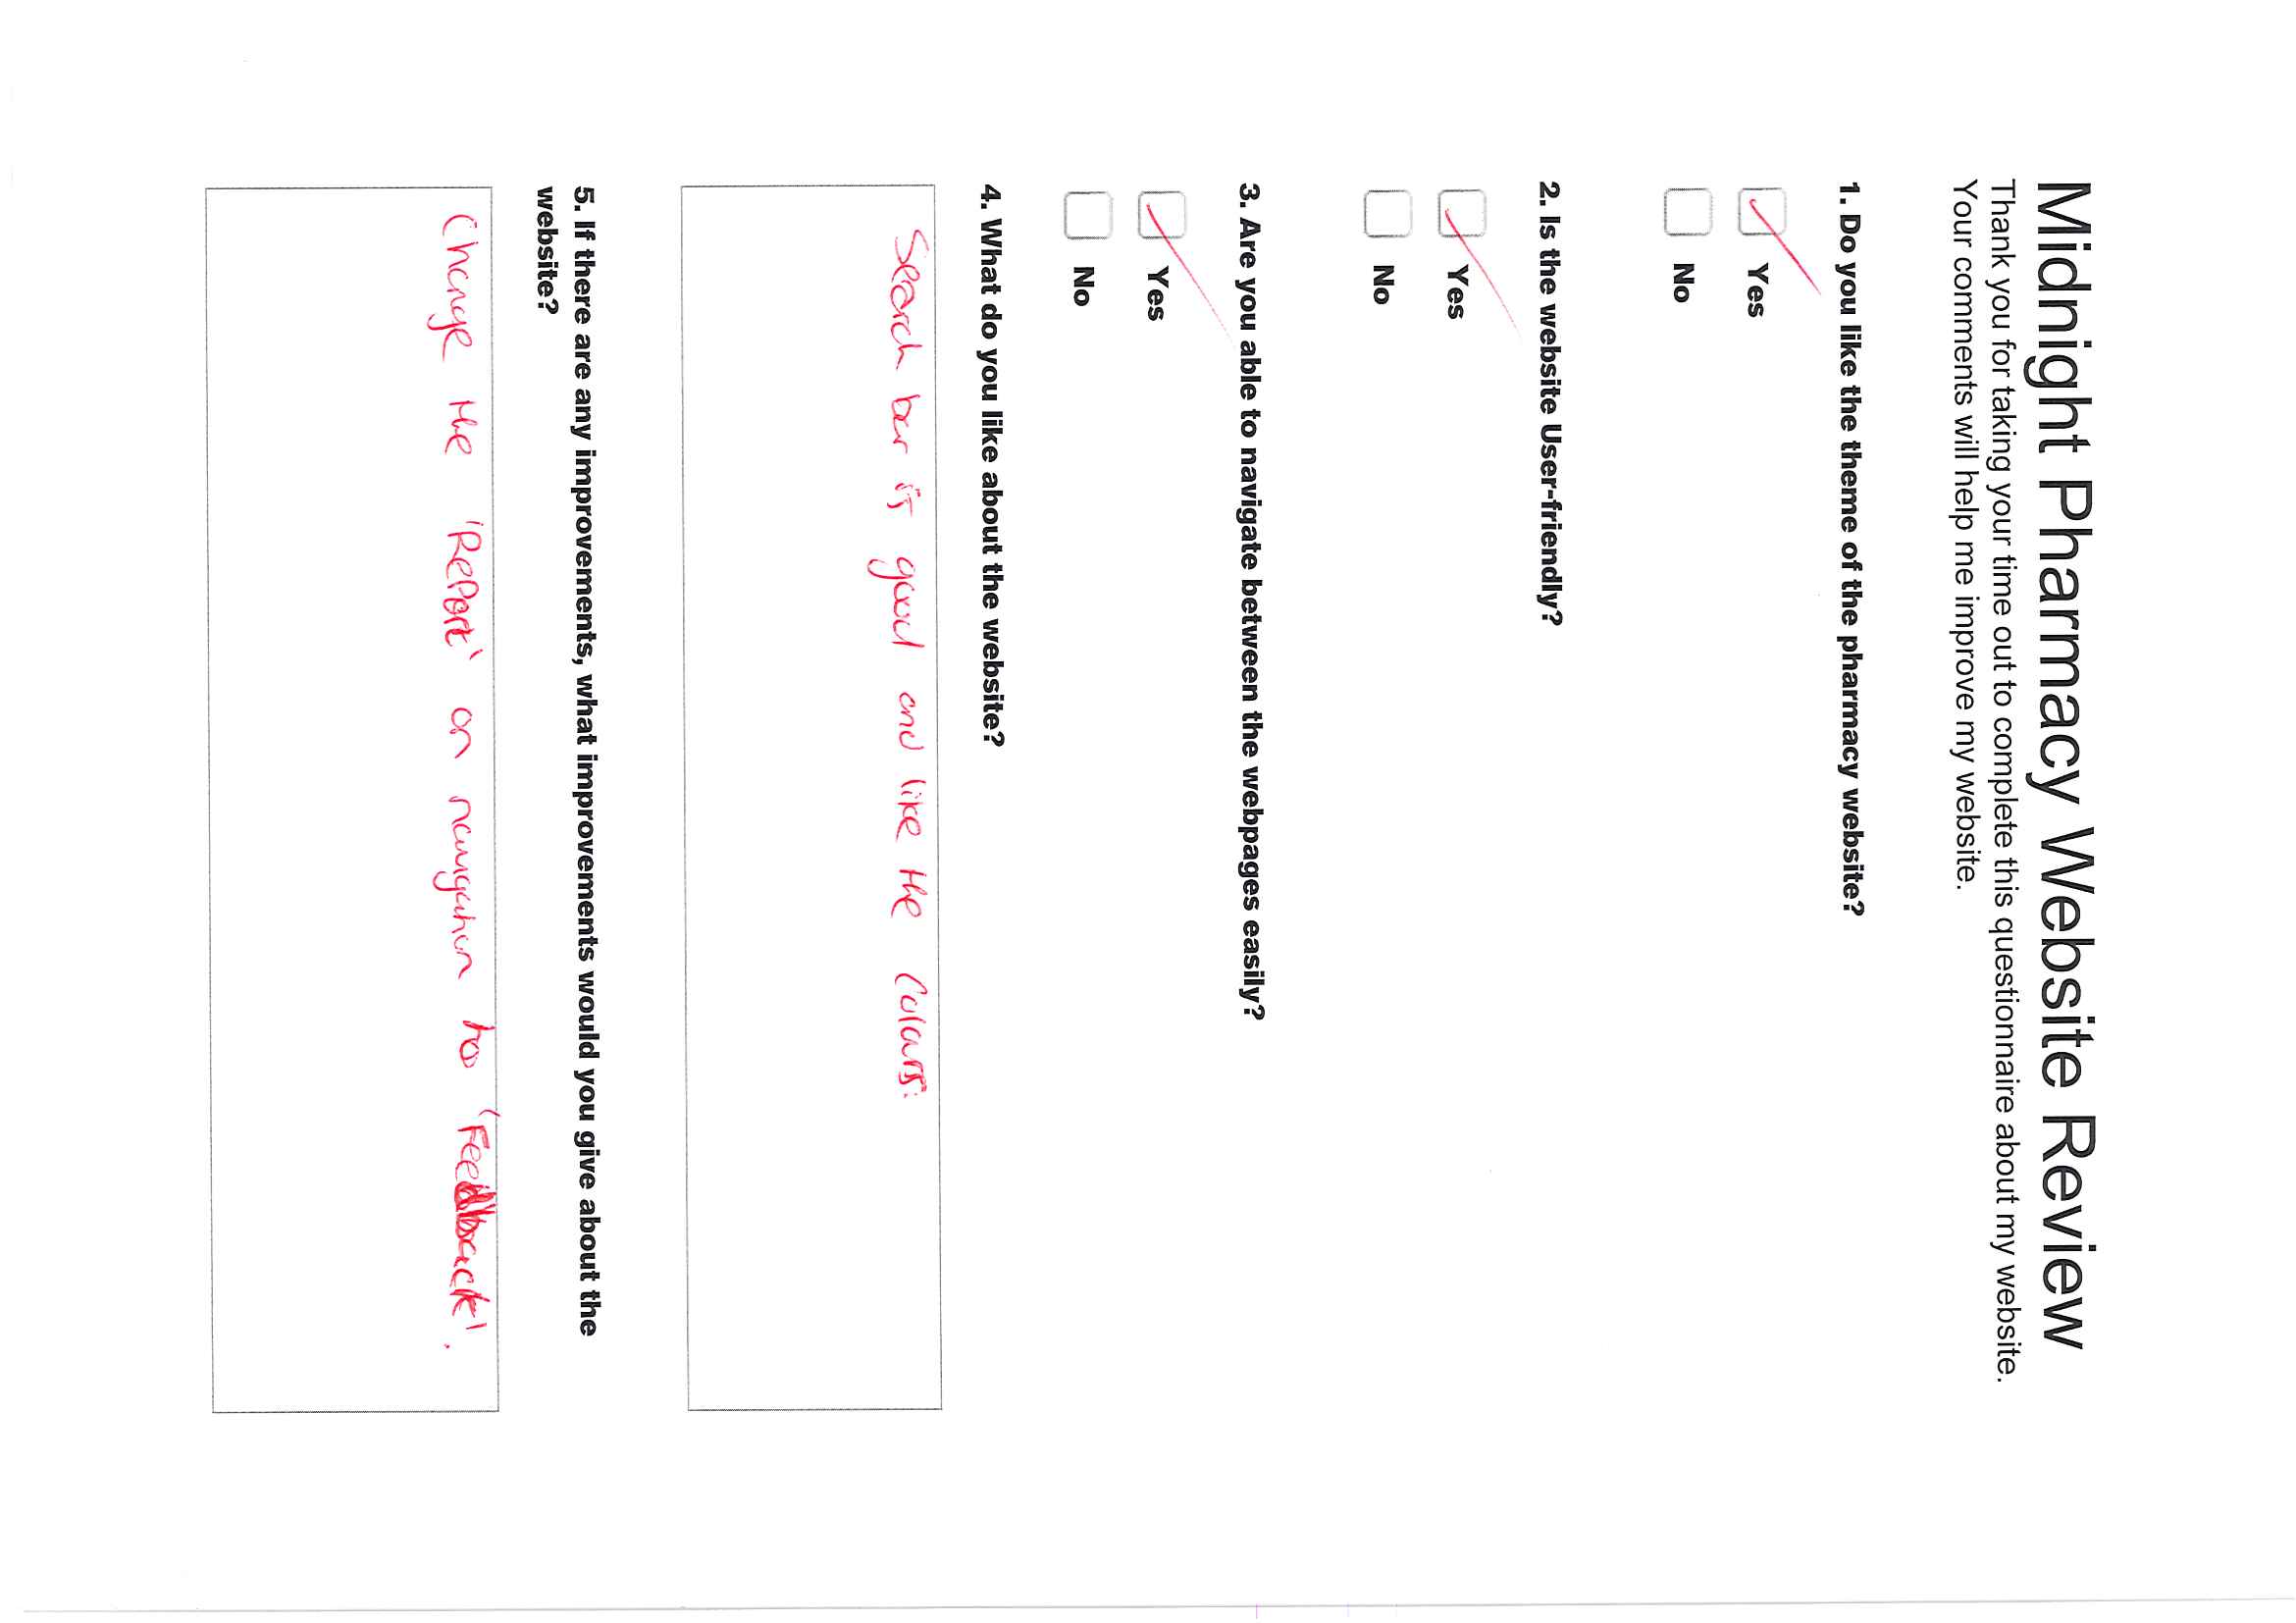 Midnight Pharmacy Website Review
Thank you for taking your time out to complete this questionnaire about my website.
Your comments will help me improve my website.
1. Do you like the theme of the pharmacy website?
Yes
No
2. Is the website User-friendly?
Yes
No
3. Are you able to navigate between the webpages easily?
Yes
No
4. What do you like about the website?
Search bar is good and like the colours.
5. If there are any improvements, what improvements would you give about the
website?
Change the 'Report' on navigation to 'Feedback'.